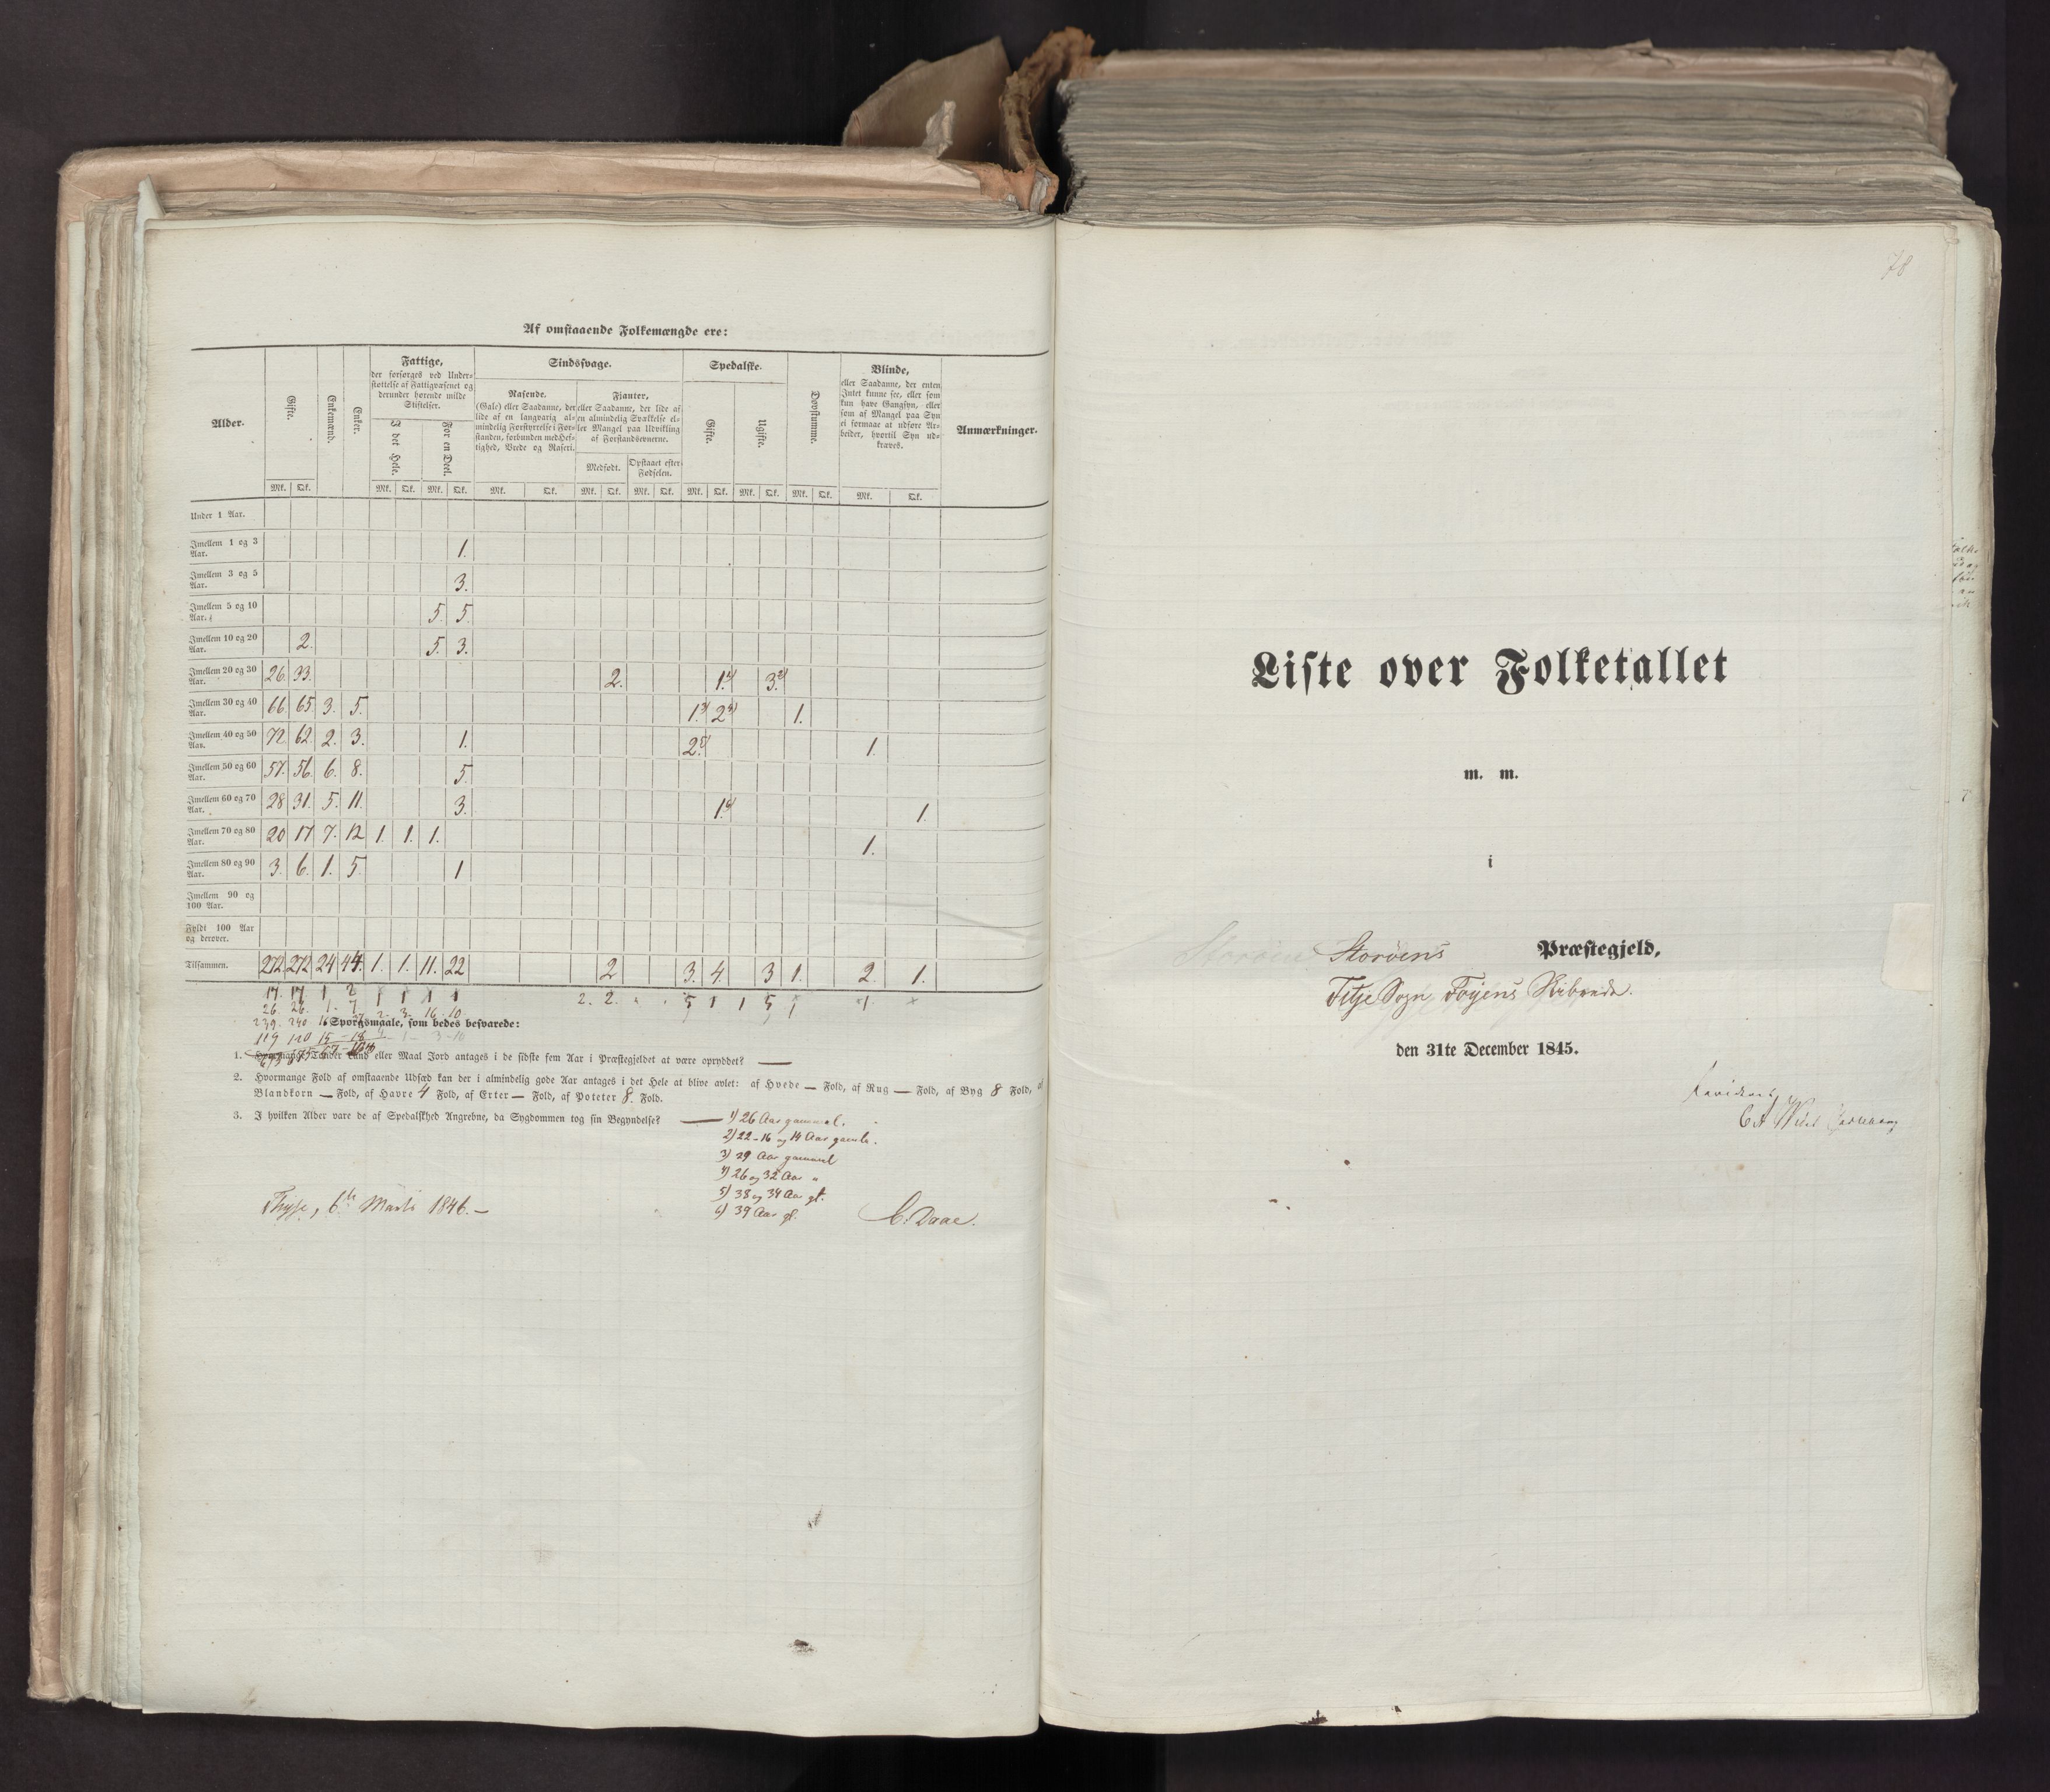 Af omstaaende Folkemængde ere:
Alder. Gifte. Enkemænd. Enker. Fattige, Sindssvage. Spedalske. Døvstumme. Blinde, Anmærkninger.
der forsørges ved Under-
støttelse af Fattigvæsenet og
derunder hørende milde
Stiftelser.
I det Hele. For en Deel.
Rasende.
(Gale) eller Saadanne, der
lide af en langvarig al-
mindelig Forstyrrelse i For-
standen, forbunden med Hef-
tighed, Vrede og Raseri.
Fianter,
eller Saadanne, der lide af
en almindelig Svækkelse el-
ler Mangel paa Udvikling
af Forstandsevnerne.
Medfødt. Opstaaet efter
Fødselen.
Gifte. Ugifte.
eller Saadanne, der enten
Intet kunne see, eller som
kun have Gangsyn, eller
som af Mangel paa Syn
ei formaae at udføre Ar-
beider, hvortil Syn ud-
kræves.
Mk. Qk. Mk. Qk. Mk. Qk. Mk. Qk. Mk. Qk. Mk. Qk. Mk. Qk. Mk. Qk. Mk. Qk. Mk. Qk.
Under 1 Aar.
Imellem 1 og 3 Aar. 1.
Imellem 3 og 5 Aar. 3.
Imellem 5 og 10 Aar. 5. 5.
Imellem 10 og 20 Aar. 2. 5. 3.
Imellem 20 og 30 Aar. 26. 33. 2. 1.1) 3.2)
Imellem 30 og 40 Aar. 66 65 3. 5. 1.3) 2 4) 1.
Imellem 40 og 50 Aar. 72. 62. 2. 3. 1. 2.5) 1.
Imellem 50 og 60 Aar. 57. 56. 6. 8. 5.
Imellem 60 og 70 Aar. 28 31. 5. 11. 3. 1.6) 1.
Imellem 70 og 80 Aar. 20 17 7. 12 1. 1. 1. 1.
Imellem 80 og 90 Aar. 3. 6. 1. 5. 1
Imellem 90 og 100 Aar.
Fyldt 100 Aar og derover.
Tilsammen. 272 272 24 44. 1. 1. 11. 22 2 3. 4. 3 1. 2. 1.
17. 17 1 2
26. 26. 1. 7
239. 240 16
119 120 15 - 18
Spørgsmaale, som bedes besvarede:
1. Hvormange Tønder Land eller Maal Jord antages i de sidste fem Aar i Præstegjeldet at være opryddet? —
2. Hvormange Fold af omstaaende Udsæd kan der i almindelig gode Aar antages i det Hele at blive avlet: af Hvede — Fold, af Rug — Fold, af Byg 8 Fold, af
Blandkorn — Fold, af Havre 4 Fold, af Erter — Fold, af Poteter 8. Fold.
3. I hvilken Alder vare de af Spedalskhed Angrebne, da Sygdommen tog sin Begyndelse? — 1) 26 Aar gammel.
2) 22 - 16 og 14 Aar gamle.
3) 29 Aar gammel
4) 26 og 32 Aar "
5) 38 og 34 Aar gl.
6) 39 Aar gl.
Thysse, 6te Marts 1846. —
C. Daae.
78
Liste over Folketallet
m. m.
i
Storøens Præstegjeld,
Fitje Sogn Føyens Skibrede.
den 31te December 1845.